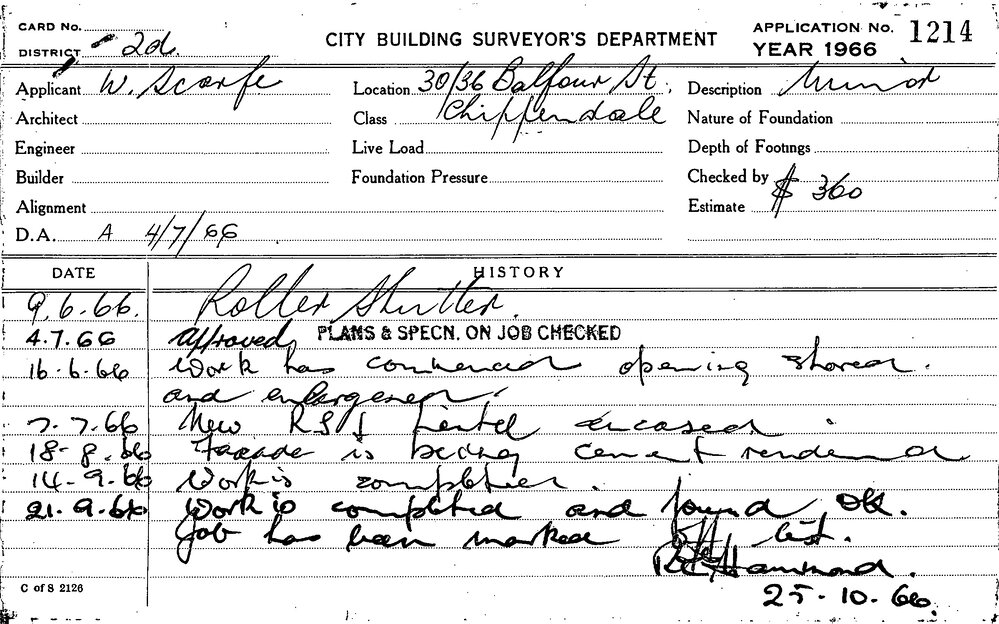 CARD No.
DISTRICT 2d.
CITY BUILDING SURVEYOR'S DEPARTMENT
APPLICATION No. 1214
YEAR 1966
Applicant W. Scarfe
Location 30/36 Balfour St
Description Minor
Architect
Class Chippendale
Nature of Foundation
Engineer
Live Load
Depth of Footings
Builder
Foundation Pressure
Checked by
Alignment
Estimate $ 360
D.A. A 4/7/66
DATE HISTORY
9.6.66. Roller Shutter.
4.7.66 Approved, PLANS & SPECN. ON JOB CHECKED
16.6.66 Work has commenced opening shored.
and enlargened.
7.7.66 New R S J Lintel encased.
18-8.66 Facade is being cement rendered.
14-9.66 Work is completed.
21.9.66 Work is completed and found OK.
Job has been marked off list.
Hammond.
25-10-66.
C of S 2126